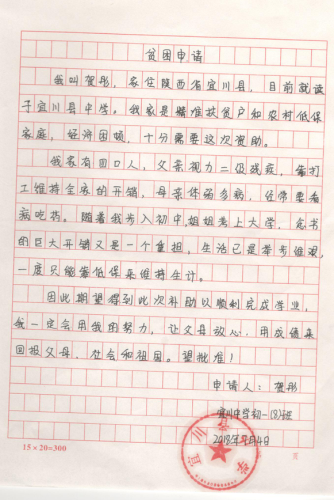 贫困申请
我叫贺彤，家住陕西省宜川县，目前就读
于宜川县中学。我家是精准扶贫户和农村低保
家庭，经济困顿，十分需要这次资助。
我家有四口人，父亲视力二级残疾，靠打
工维持全家的开销，母亲体弱多病，经常要看
病吃药。随着我步入初中，姐姐考上大学，念书
的巨大开销又是一个重担，生活已是举步维艰，
一度只能靠低保来维持生计。
因此期望得到此次补助以顺利完成学业，
我一定会用我的努力，让父母放心，用成绩来
回报父母、社会和祖国。望批准！
申请人：贺彤
宜川中学初一(8)班
2018年 月4日
宜川
学
15×20=300